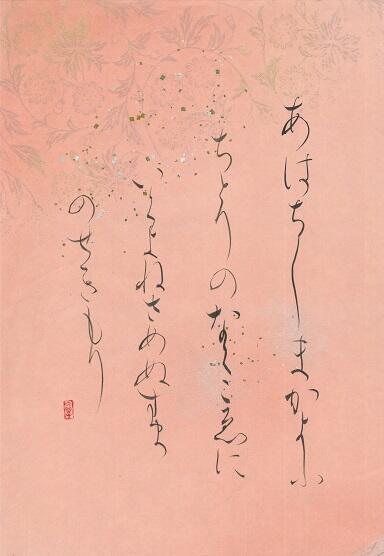 あはちしまかよふ
ちとりのなくこゑに
いくよねさめぬすま
のせきもり